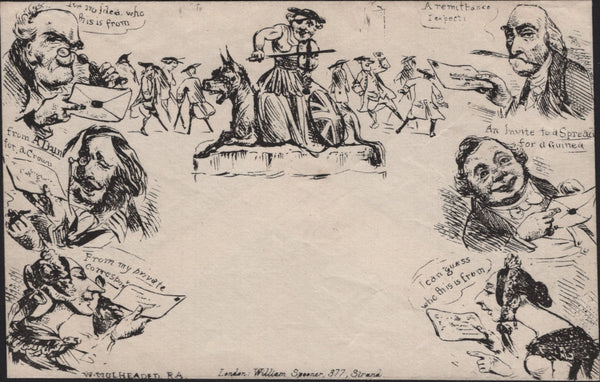 I've no Idea who
this is from
A remittance
I expect!
from A Dun
for a Crown
An Invite to a Spread
for a Guinea
From my private
correspon
I can guess
who this is from
W. MULHEADED. R.A.
London: William Spooner, 377, Strand